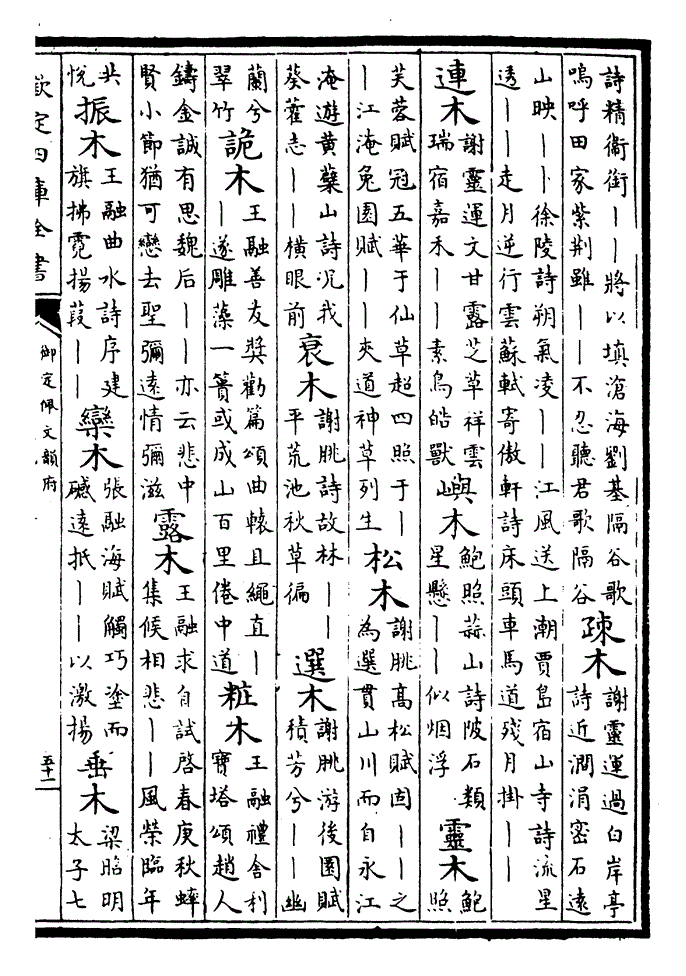 詩精衛銜丨丨將以填滄海劉基隔谷歌
嗚呼田家紫荆雖丨丨不忍聽君歌隔谷
疎木
謝靈運過白岸亭
詩近澗涓密石遠
山映丨丨徐陵詩朔氣凌丨丨江風送上潮賈島宿山寺詩流星
透丨丨走月逆行雲蘇軾寄傲軒詩床頭車馬道殘月掛丨丨
連木
謝靈運文甘露芝草祥雲
瑞宿嘉禾丨丨素烏皓獸
嶼木
鮑照蒜山詩陂石類
星懸丨丨似烟浮
靈木
鮑
照
芙蓉賦冠五華于仙草超四照于丨
丨江淹兔園賦丨丨夾道神草列生
松木
謝朓高松賦固丨丨之
為選貫山川而自永江
淹遊黄蘖山詩況我
葵藿志丨丨横眼前
衰木
謝朓詩故林丨丨
平荒池秋草徧
選木
謝朓游後園賦
積芳兮丨丨幽
蘭兮
翠竹
詭木
王融善友奬勸篇頌曲轅且繩直丨
丨遂雕藻一簣或成山百里倦中道
粧木
王融禮舍利
寶塔頌趙人
鑄金誠有思魏后丨丨亦云悲中
賢小節猶可戀去聖彌遠情彌滋
露木
王融求自試啓春庚秋蟀
集候相悲丨丨風榮臨年
共
悦
振木
王融曲水詩序建
旗拂霓揚葭丨丨
欒木
張融海賦觸巧塗而
礚遠抵丨丨以激揚
垂木
梁昭明
太子七
欽定四庫全書
御定佩文韻府
五十一